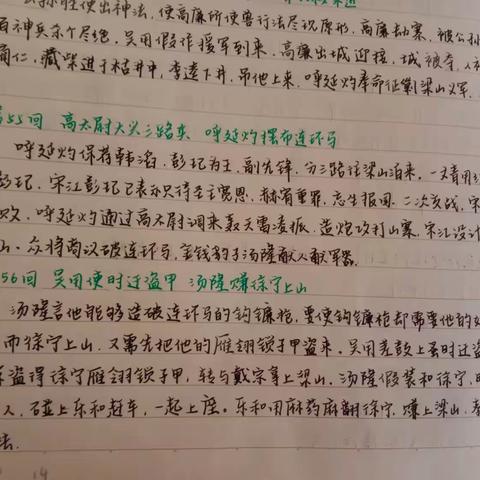 使出神法,使高廉所使害行法尽现原形,高廉劫寨,被公孙
百神兵杀个尽绝,吴用假作援军到来,高廉出城迎接,城被夺,人被
蔺仁,藏柴进于枯井中,李逵下井,吊他上来,呼延灼奉命征剿梁山义军,
55回 高太尉大兴三路兵 呼延灼摆布连环马
呼延灼保荐韩滔,彭玘为正,副先锋,分三路往梁山泊来,一丈青
彭玘,宋江彭玘已表示只待圣主宽恩,赦宥重罪,忘生报国,二次交战,宋
败,呼延灼通过高太尉调来轰天雷凌振,造炮攻打山寨,宋江设计
山,众将商议破连环马,金钱豹子汤隆献人献军器.
56回 吴用使时迁盗甲 汤隆赚徐宁上山
汤隆言他能够造破连环马的钩镰枪,要使钩镰枪却需要他的
而徐宁上山,又需先把他的雁翎锁子甲盗来,吴用差鼓上蚤时迁盗
盗得徐宁雁翎锁子甲,转与戴宗拿上梁山,汤隆假装和徐宁,
人,碰上乐和赶车,一起上座,乐和用麻药麻翻徐宁,赚上梁山,
法.